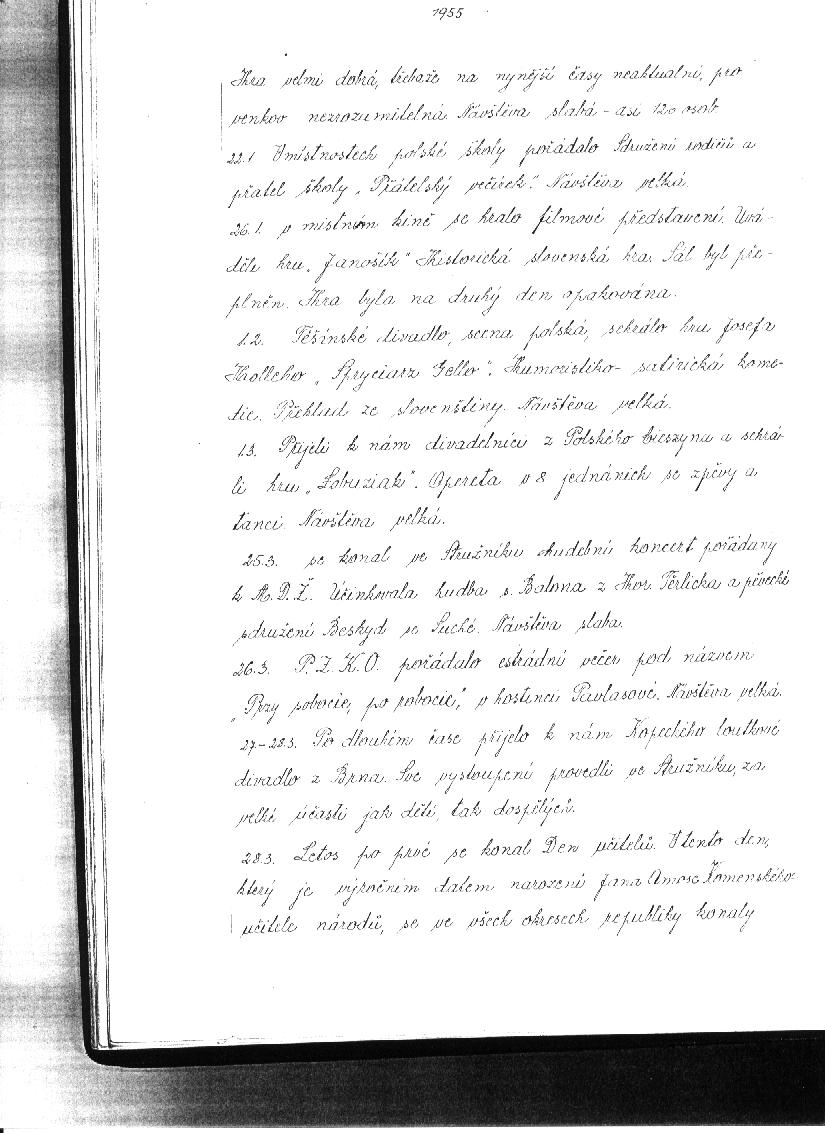 1955
Hra velmi dobrá, třebaže na nynější časy neaktualní, pro
venkov nezrozumitelná. Návštěva slabá - asi 120 osob.
22.1. V místnostech polské školy pořádalo Sdružení rodičů a
přatel školy „Přátelský večírek". Návštěva velká.
26.1. v místním kině se hralo filmové představení. Uvá-
děli hru „Janošík" Historická slovenská hra. Sál byl pře-
plněn. Hra byla na druhý den opakována.
1.2. Těšínské divadlo, scena polská, sehrálo hru Josefa
Hollého „Spryciarz Gello". Humoristiko-satirická kome-
die. Překlad ze slovenštiny. Návštěva velká.
1.3. Přijeli k nám divadelníci z Polského Cieszyna a sehrá-
li hru „Łobuziak". Opereta v 8 jednáních se zpěvy a
tanci. Návštěva velká.
25.3. se konal ve Stružníku hudební koncert pořádaný
k M.D.Ž. Učinkovala hudba s. Balona z Hor. Těrlicka a pěvecké
sdružení Beskyd se Suché. Návštěva slaba.
26.3. P.Z.K.O. pořádalo estrádní večer pod názvem
„Przy sobocie, po robocie," v hostinci Pavlasové. Návštěva velká.
27.-28.3. Po dlouhém čase přijelo k nám Kopeckého loutkové
divadlo z Brna. Své vystoupení provedli ve Stružníku, za
velké účasti jak dětí, tak dospělých.
28.3. Letos po prvé se konal Den učitelů. V tento den,
který je výročním datem narození Jana Amose Komenského
učitele národů, se ve všech okresech republiky konaly